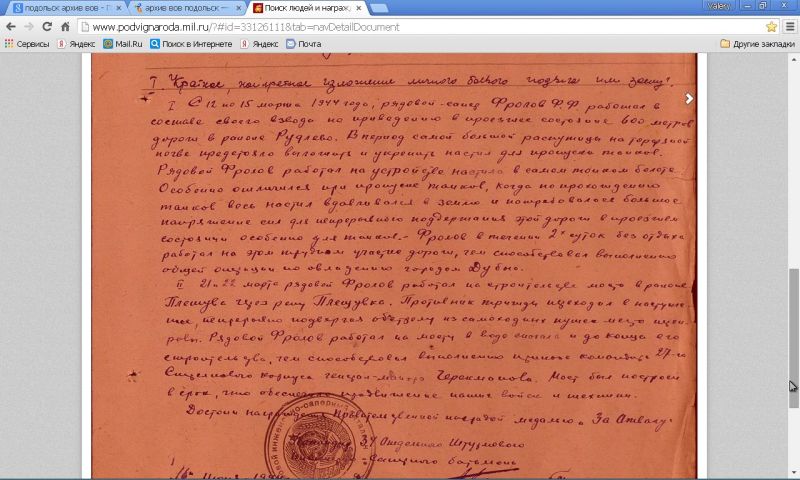 подольск архив вов - П
архив вов подольск —
Поиск людей и награж
Valery
www.podvignaroda.mil.ru/?#id=33126111&tab=navDetailDocument
Сервисы Яндекс Mail.Ru Поиск в Интернете Яндекс Почта Другие закладки
I. Краткое, конкретное изложение личного боевого подвига или заслуг.
I С 12 по 15 марта 1944 года, рядовой-сапер Фролов Ф.Ф. работал в
составе своего взвода по приведению в проезжее состояние 600 метров
дороги в районе Рудлево. В период самой большой распутицы на торфяной
почве предстояло выложить и укрепить настил для пропуска танков.
Рядовой Фролов работал на устройстве настила в самом топком болоте.
Особенно отличился при пропуске танков, когда по прохождению
танков весь настил вдавливался в землю и потребовалось большое
напряжение сил для непрерывного поддержания этой дороги в проезжем
состоянии особенно для танков. - Фролов в течении 2х суток без отдыха
работал на этом трудном участке дороги, чем способствовал выполнению
общей операции по овладению городом Дубно.
II 21 и 22 марта рядовой Фролов работал на строительстве моста в районе
Плешувка через реку Плешувка. Противник трижды переходил в наступле-
ние, непрерывно подвергая обстрелу из самоходных пушек место пере-
правы. Рядовой Фролов работал на мосту в воде сначала и до конца его
строительства, чем способствовал выполнению приказа командира 27-го
Стрелкового корпуса генерал-майора Черокманова. Мост был построен
в срок, что обеспечило продвижение наших войск и техники.
Достоин награждения Правительственной наградой медалью „За Отвагу"
Командир Отдельного Штурмового
Инженерно-Саперного батальона